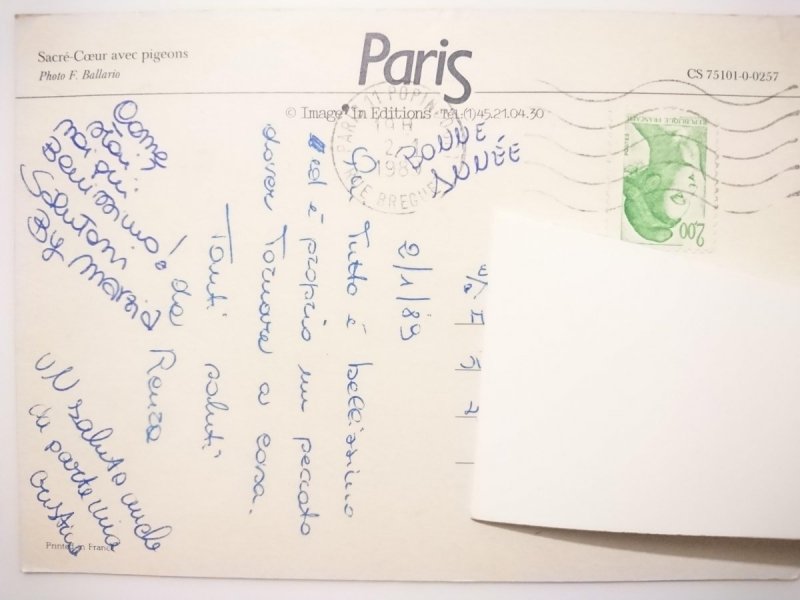 Sacré-Cœur avec pigeons
Photo F. Ballario
Paris
CS 75101-0-0257
© Image' In Editions - Tél. (1) 45.21.04.30
PARIS 11 POPINC
2-1
1989
R. BREGUET
BONNE
ANNÉE
REPUBLIQUE FRANÇAISE
2,00
2/1/89
Qui tutto è bellissimo
ed è proprio un peccato
dover tornare a casa.
Tanti saluti
da Renza
Come
stai?
noi qui
Benissimo!
Salutoni
By Marzia
UN saluto anche
da parte mia
Printed in France